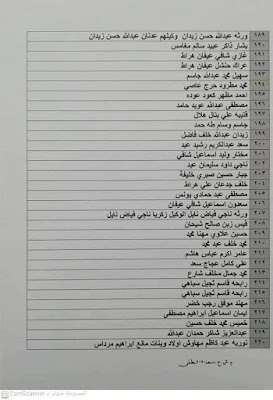 ١٨٩ ورثه عبدالله حسن زيدان وكيلهم عدنان عبدالله حسن زيدان
١٩٠ بشار ذاكر عبيد سالم مغامس
١٩١ غازي شافي عيفان هراط
١٩٢ عراك حنشل عيفان هراط
١٩٣ سهيل محمد عبدالله جاسم
١٩٤ محمد مطرود حرج عناصي
١٩٥ احمد مظهر كعود عوده
١٩٦ مصطفى عبدالله عويد حامد
١٩٧ قتيبه علي بنال هلال
١٩٨ جاسم وسام طه حمد
١٩٩ زيدان عبدالله خلف فاضل
٢٠٠ سعد عبدالكريم رشيد عبد
٢٠١ مختار وليد اسماعيل شافي
٢٠٢ ناجي داود سليمان عبد
٢٠٣ جبار حسين صبري خليفة
٢٠٤ خلف جدعان علي هراط
٢٠٥ مصطفى عبد حمادي يونس
٢٠٦ سعدون اسماعيل شافي عيفان
٢٠٧ ورثه ناجي فياض نايل الوكيل زكريا ناجي فياض نايل
٢٠٨ قيس زبن صالح شيحان
٢٠٩ حسين علاوي مهنا محمد
٢١٠ محمد خلف عبد محمد
٢١١ عامر اكرم عباس هاشم
٢١٢ علي كامل عجاج سعد
٢١٣ محمد جمال مخلف شارع
٢١٤ رابحه قاسم ثجيل سباهي
٢١٥ رابحه قاسم ثجيل سباهي
٢١٦ مهند موفق رجب خضر
٢١٧ ايمان اسماعيل ابراهيم مصطفى
٢١٨ خميس محمد خلف حسين
٢١٩ عبدالعزيز شاكر حمدان عبدالله
٢٢٠ نوريه عبد كاظم مهاوش اولاد وبنات مانع ابراهيم مرداس
الممسوحة ضوئيا بـ CamScanner